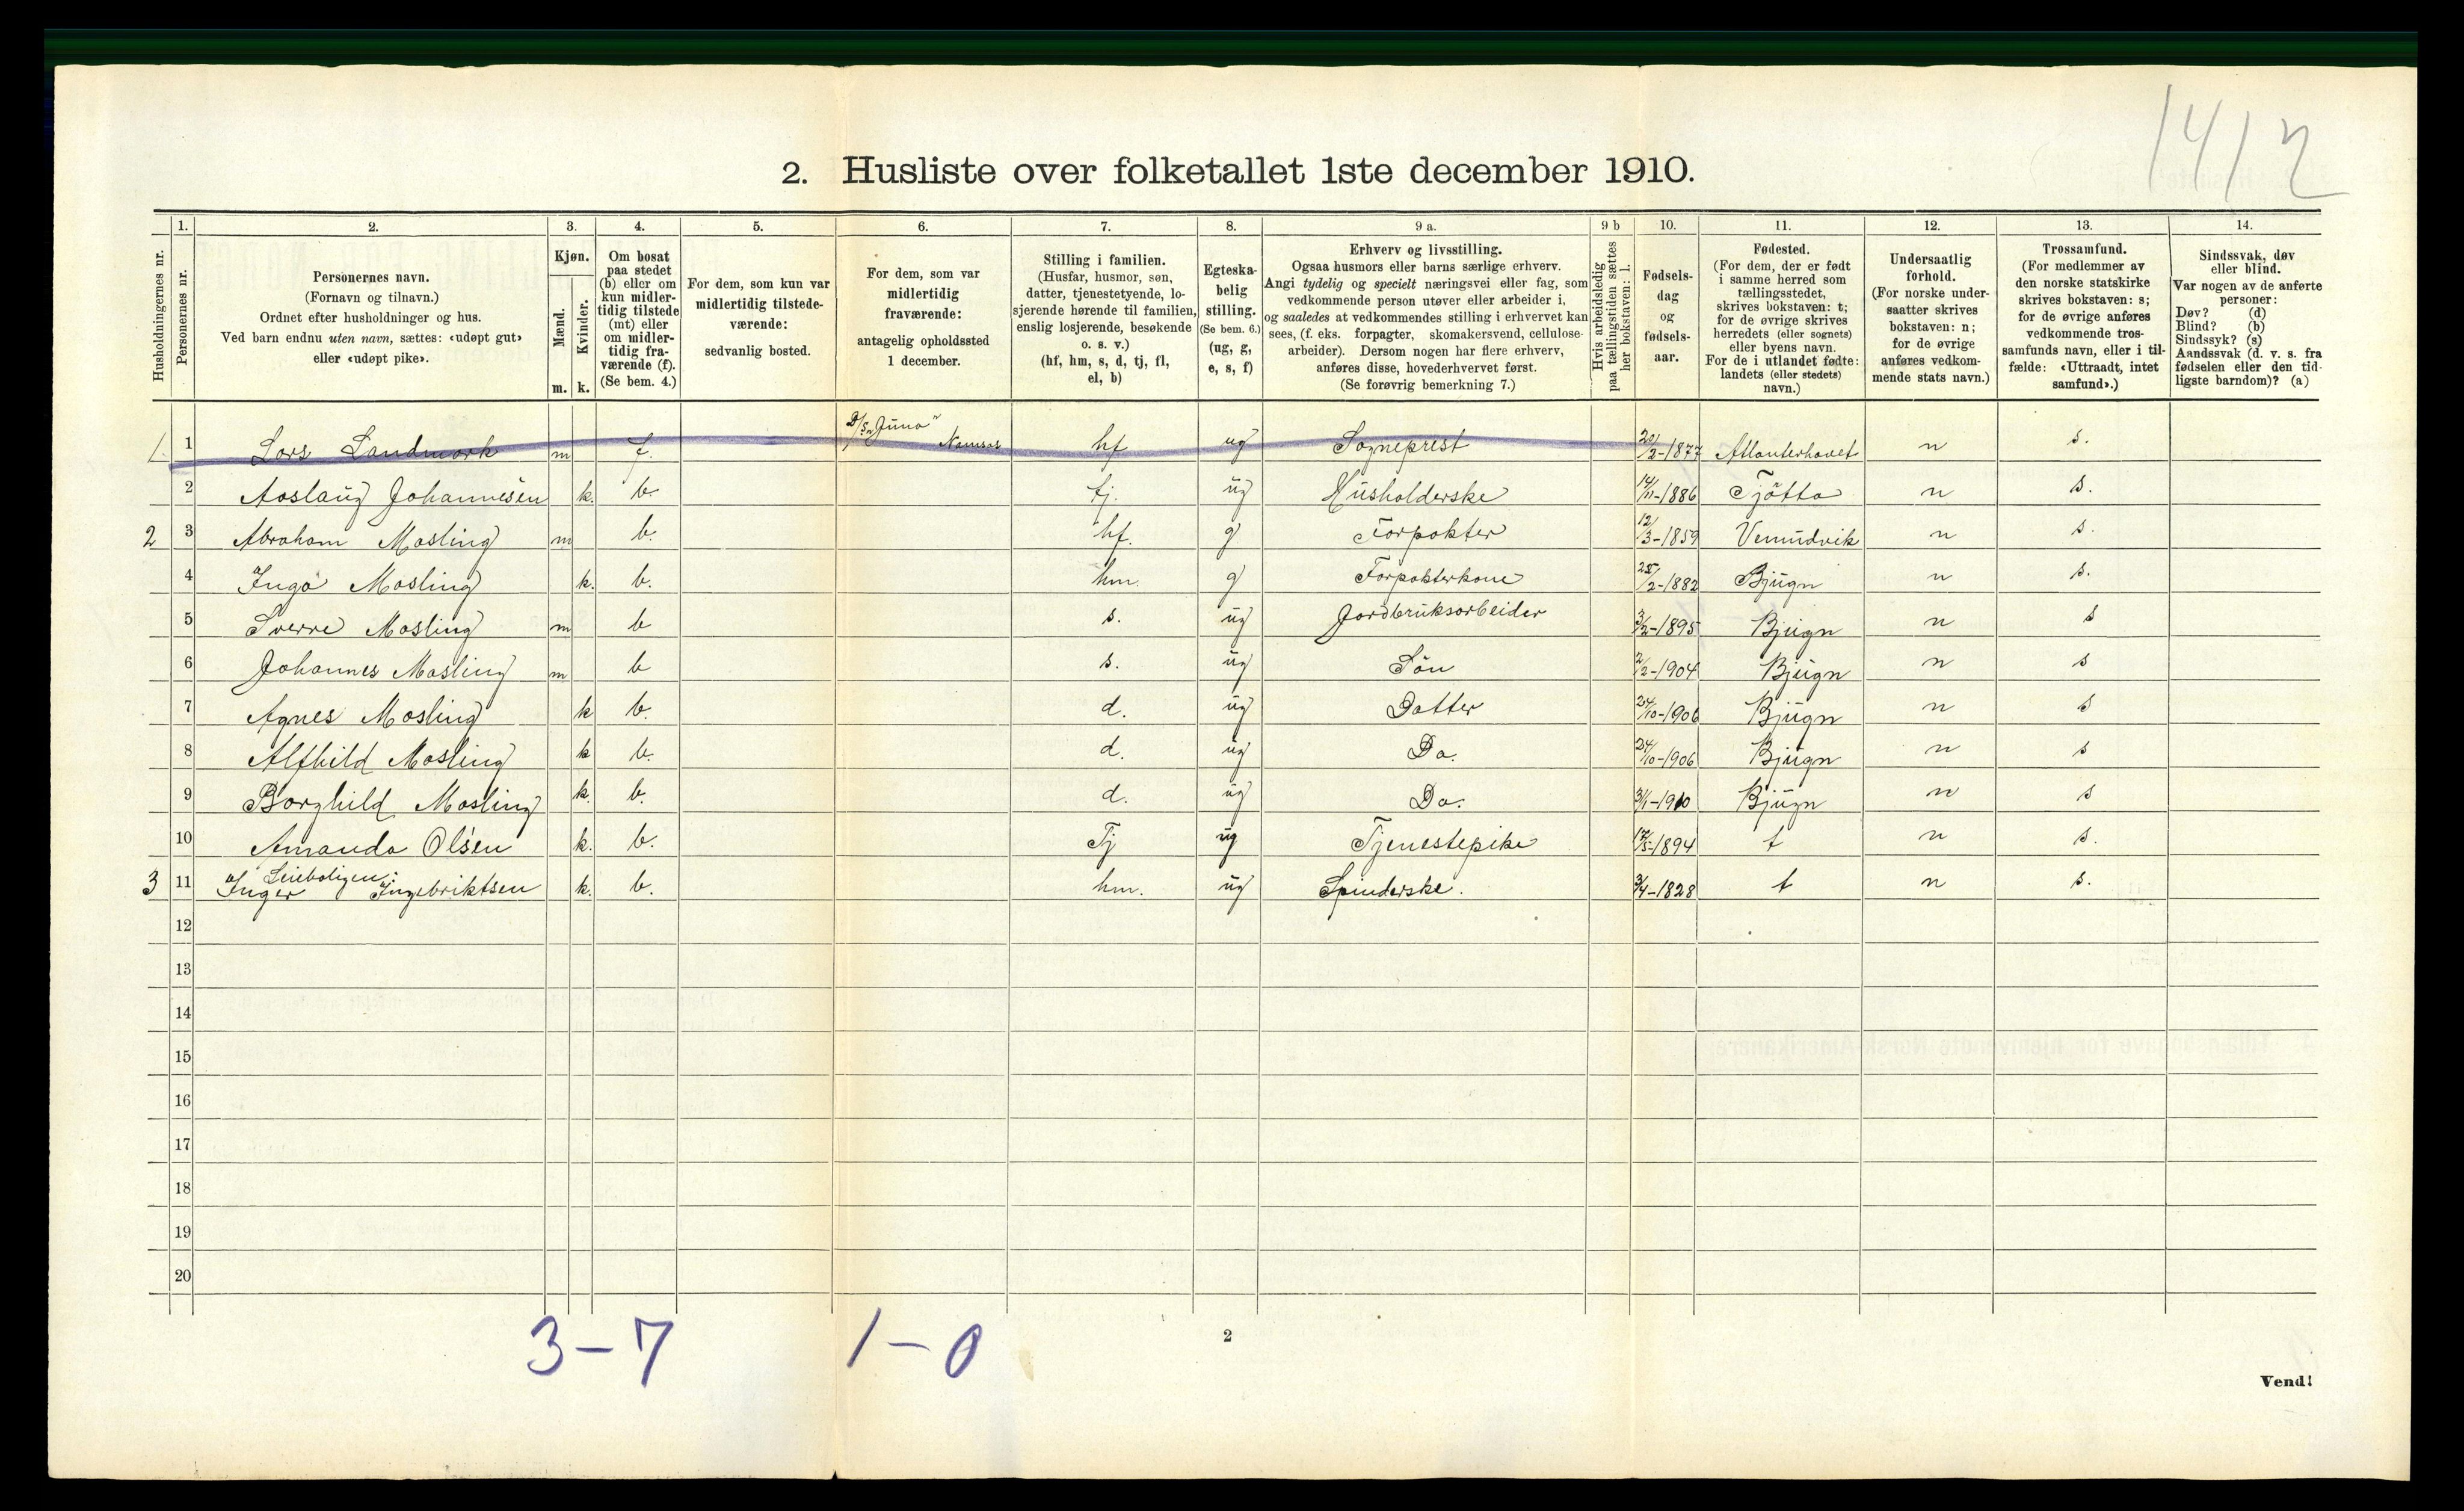 1412
2. Husliste over folketallet 1ste december 1910.
1. 2. 3. 4. 5. 6. 7. 8. 9 a. 9 b 10. 11. 12. 13. 14.
Husholdningernes nr.
Personernes nr.
Personernes navn.
(Fornavn og tilnavn.)
Ordnet efter husholdninger og hus.
Ved barn endnu uten navn, sættes: «udøpt gut»
eller «udøpt pike».
Kjøn.
Mænd.
Kvinder.
m. k.
Om bosat
paa stedet
(b) eller om
kun midler-
tidig tilstede
(mt) eller
om midler-
tidig fra-
værende (f).
(Se bem. 4.)
For dem, som kun var
midlertidig tilstede-
værende:
sedvanlig bosted.
For dem, som var
midlertidig
fraværende:
antagelig opholdssted
1 december.
Stilling i familien.
(Husfar, husmor, søn,
datter, tjenestetyende, lo-
sjerende hørende til familien,
enslig losjerende, besøkende
o. s. v.)
(hf, hm, s, d, tj, fl,
el, b)
Egteska-
belig
stilling.
(Se bem. 6.)
(ug, g,
e, s, f)
Erhverv og livsstilling.
Ogsaa husmors eller barns særlige erhverv.
Angi tydelig og specielt næringsvei eller fag, som
vedkommende person utøver eller arbeider i,
og saaledes at vedkommendes stilling i erhvervet kan
sees, (f. eks. forpagter, skomakersvend, cellulose-
arbeider). Dersom nogen har flere erhverv,
anføres disse, hovederhvervet først.
(Se forøvrig bemerkning 7.)
Hvis arbeidsledig
paa tællingstiden sættes
her bokstaven: l.
Fødsels-
dag
og
fødsels-
aar.
Fødested.
(For dem, der er født
i samme herred som
tællingsstedet,
skrives bokstaven: t;
for de øvrige skrives
herredets (eller sognets)
eller byens navn.
For de i utlandet fødte:
landets (eller stedets)
navn.)
Undersaatlig
forhold.
(For norske under-
saatter skrives
bokstaven: n;
for de øvrige
anføres vedkom-
mende stats navn.)
Trossamfund.
(For medlemmer av
den norske statskirke
skrives bokstaven: s;
for de øvrige anføres
vedkommende tros-
samfunds navn, eller i til-
fælde: «Uttraadt, intet
samfund».)
Sindssvak, døv
eller blind.
Var nogen av de anførte
personer:
Døv? (d)
Blind? (b)
Sindssyk? (s)
Aandssvak (d. v. s. fra
fødselen eller den tid-
ligste barndom)? (a)
1. 1 Lars Landmark m f. D/S "Juno" Namsos hf ug Sogneprest 20/2-1877 Atlanterhavet n s.
2 Aaslaug Johannesen k. b. tj. ug Husholderske 14/11-1886 Tjøtta n s.
2 3 Abraham Masling m b. hf. g Forpakter 12/3-1859 Vemundvik n s
4 Inga Masling k. b. hm. g Forpakterkone 25/2-1882 Bjugn n s.
5 Sverre Masling m b s. ug Jordbruksarbeider 3/2-1895 Bjugn n s
6 Johannes Masling m b s. ug Søn 2/2-1904 Bjugn n s
7 Agnes Masling k b. d. ug Datter 24/10-1906 Bjugn n s
8 Alfhild Masling k b. d. ug Do. 24/10-1906 Bjugn n s
9 Borghild Masling k. b. d. ug Do. 3/1-1910 Bjugn n s
10 Amanda Olsen k. b. Tj ug Tjenestepike 17/5-1894 t n s.
Leieboligen:
3 11 Inger Ingebriktsen k. b. hm. ug Spinderske. 3/4-1828 t n s.
12
13
14
15
16
17
18
19
20
3-7 1-0
2
Vend!